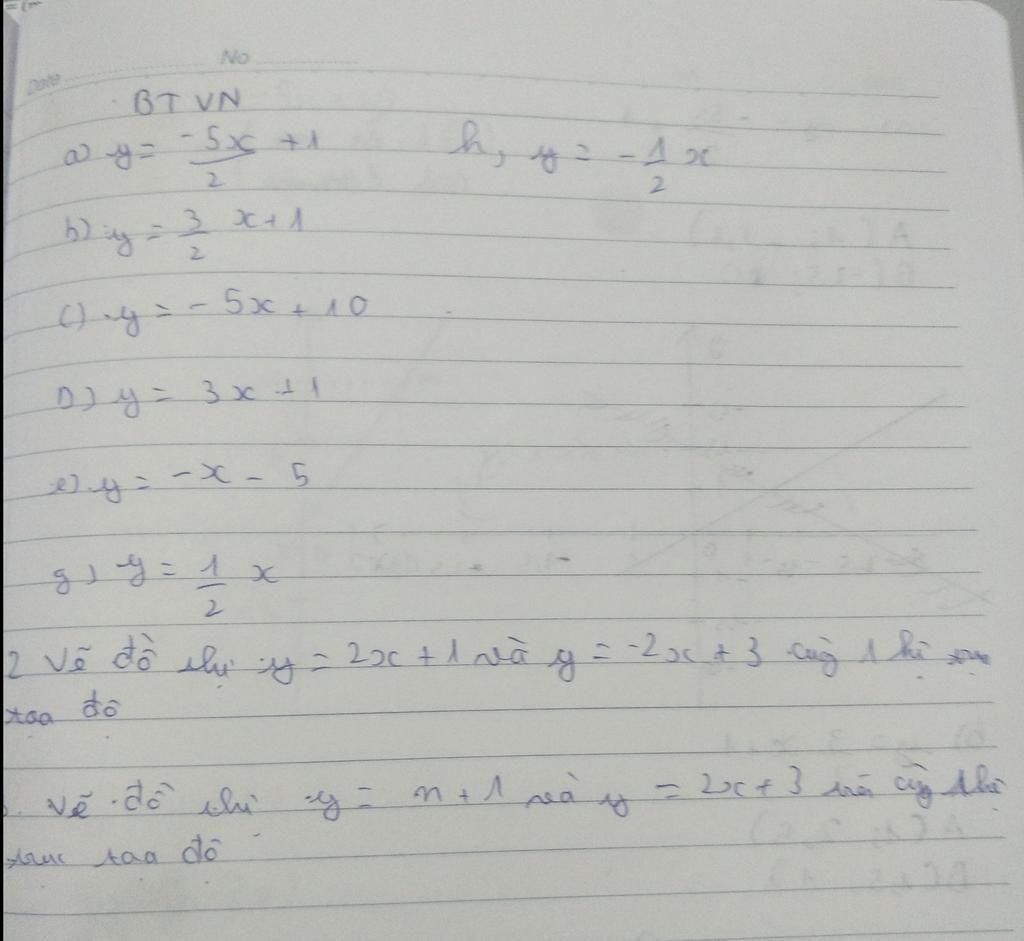 No
Date
BTVN
a) y = -5x/2 + 1 h, y = - 1/2 x
b) y = 3/2 x + 1
c) y = - 5x + 10
D) y = 3x + 1
e) y = -x - 5
g) y = 1/2 x
2 Vẽ đồ thị y = 2x + 1 và y = -2x + 3 cùng 1 hệ trục
tọa độ
. Vẽ đồ thị y = x + 1 và y = 2x + 3 trên cùng 1 hệ
trục tọa độ